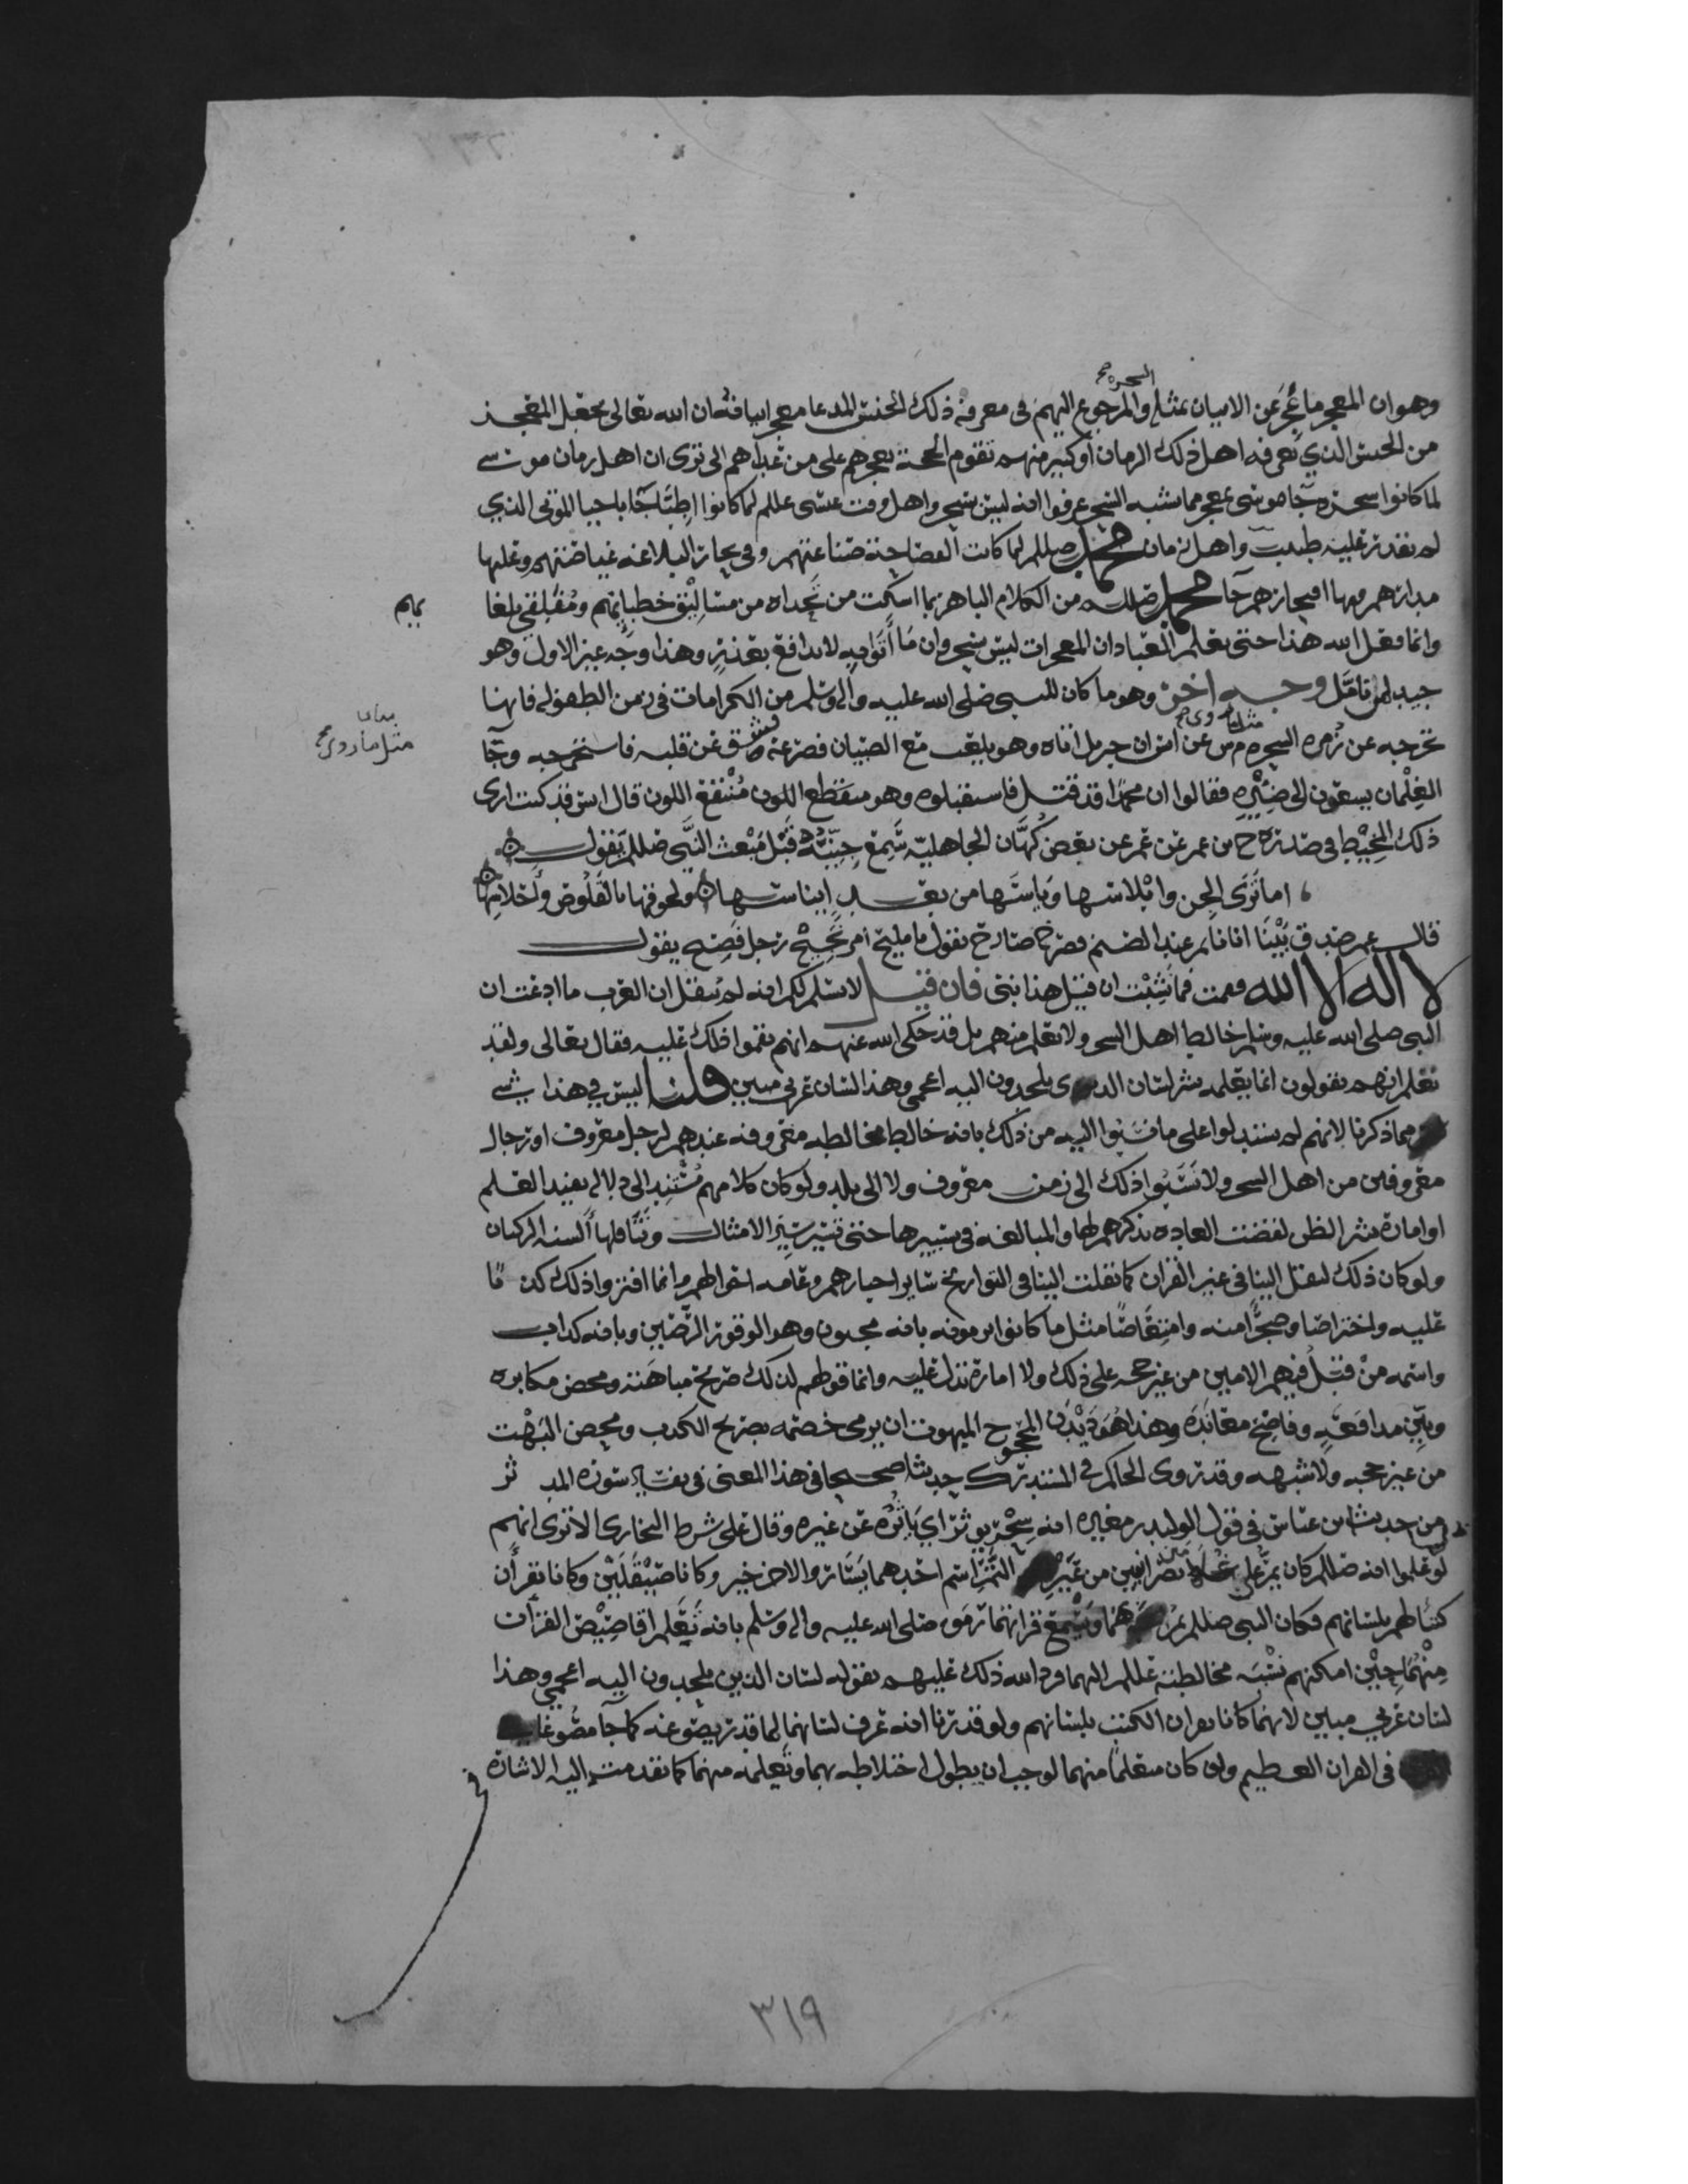 السحره صح
وهو ان المعجز ما عجز عن الاتيان بمثله والمرجوع اليهم في معرفة ذلك الجنس المدعا معجزا بيانه ان الله تعالى يجعل المعجز
من الجنس الذي يعرفه اهل ذلك الزمان او كبير منهم لتقوم الحجة بعجزهم على من عداهم الا ترى ان اهل زمان موسى
لما كانوا سحرة جا موسى بمعجز مما يشبه السحر عرفوا انه ليس بسحر واهل وقت عيسى عللم لما كانوا اطبّا جآ باحيا الموتى الذي
لم يقدر عليه طبيب واهل زمان محمد صللم لما كانت الفصاحة صناعتهم وفي بحار البلاغه غياضتهم وعليها
مدارهم وبها افتخارهم جآ محمد صللم من الكلام الباهر بما اسكت من تحداه من مساليق خطبايهم ومفلقي بلغا
يهم
وانما فعل الله هذا حتى يعلم العباد ان المعجزات ليس بسحر وان ما أتوا به لا يدافع بعذر وهذا وجه غير الاول وهو
جيد لمن تامّل وجــه اخر وهو ما كان للنبي صلى الله عليه وآله وسلم من الكرامات في زمن الطفوله فانها
مثل ما روى صح
تخرجه عن زمره السحره م س عن انس ان جبريل اتاه وهو يلعب مع الصبيان فصرعه فشق عن قلبه فاستخرجه وجآ
الغِلْمان يسعون الى ضِئْرِه فقالوا ان محمدًا قد قتــل فاستقبلوه وهو منتقع اللون قال انس قد كنت ارى
ذلك المِخْيَط في صدره ح من عمر عن عمر عن بعض كُهَّان الجاهليّه سَمِعَ جِنّيّه قَبْلَ مَبْعث النَّبي صللم يقول
اما تَرَى الجن وابْلاسها وَيَاسَها من بعــد ايناسـها ولحوقها بالقَلُوص وأحْلاسِها
قال عمر صدق بَيْنَا انا نايم عند الصنم فصرخ صارخ يقول يا جليح امر نَجِيْح رجل فَصِيح يقول
لا اله الا الله فقمت فما نَشِبْت ان قيل هذا نبي فان قيــل لا نسلم لكم انه لم ينقل ان العرب ما ادعت ان
النبي صلى الله عليه وسلم خالط اهل السحر ولا تعلم منهم بل قد حكى الله عنهم انهم نقموا ذلك عليه فقال تعالى ولقد
نعلم انهم يقولون انما يعلمه بشر لسان الذي يلحدون اليه اعجمي وهذا لسان عربي مبين قلنا ليس في هذا شي
مما ذكرنا لانهم لم يستدلوا على ما نسبوا اليه من ذلك بانه خالط مخالطه معروفه عندهم لرجل معروف او رجال
معروفين من اهل السحر ولا نَسَبُوا ذلك الى زمن معروف ولا الى بلد ولو كان كلامهم مُسْتَنِد الى دلاله يفيد العلم
او امارة تثمر الظن لقضت العاده بذكرهم لها والمبالغه في تسييرها حتى تسير سَيْر الامثال وتَنَاقلها ألسنة الركبان
ولو كان ذلك لنقل الينا في غير القران كما نقلت الينا في التواريخ ساير اخبارهم وعامه اقوالهم وانما افتروا ذلك كذبًا
عليه واختراصا وضجرًا منه وامتِعَاضًا مثل ما كانوا يرمونه بانه مجنون وهو الوقور الرّصين وبانه كذاب
واسمه مِنْ قَبْل فيهم الامين من غير حجه على ذلك ولا امارة تدل عليه وانما قولهم لذلك صريح مباهَته ومحض مكابره
وبَيِّن مدافَعَهٍ وفاضِح معانَدَه وهذا هُوَ دَيْدَن المحجوج المبهوت ان يرمي خصمه بصريح الكذب ومحض البَهْت
من غير حجه ولا شبهه وقد روى الحاكم في المستدرك حديثا صحيحا في هذا المعنى في تفسير سورة المدثر
من حديث ابن عباس في قول الوليد بن مغيره انه سِحْر يوثر اي يَاثُرُه عن غيره وقال على شرط البخاري الا ترى انهم
لو علموا انه صللم كان يمرّ على نصرانيين من عَيْنِ التَّمْر اسم احدهما يَسَار والاخر خير وكانا صَيْقَلَيْن وكانا يقرأن
كتبًا لهم بلسانهم فكان النبي صللم يمر هما وَيَسْمَع قرائتهما رَمَوه صلى الله عليه واله وسلم بانه تَعَلم اقاصِيْص القرآن
مِنْهُمَا حِيْنَ امكنهم نِسْبَه مخالطته عللم اليهما فرد الله ذلك عليهم بقوله لسان الذين يلحدون اليه اعجمي وهذا
لسان عربي مبين لانهما كانا يقران الكتب بلسانهم ولو قدرنا انه عرف لسانهما لما قدر يصوغه كما جآ مصُوغا
في القران العظيم ولو كان متعلمًا منهما لوجب ان يطول اختلاطه بهما وتعلمه منهما كما تقدمت اليه الاشارة
مثل ما روى صح
٣١٩